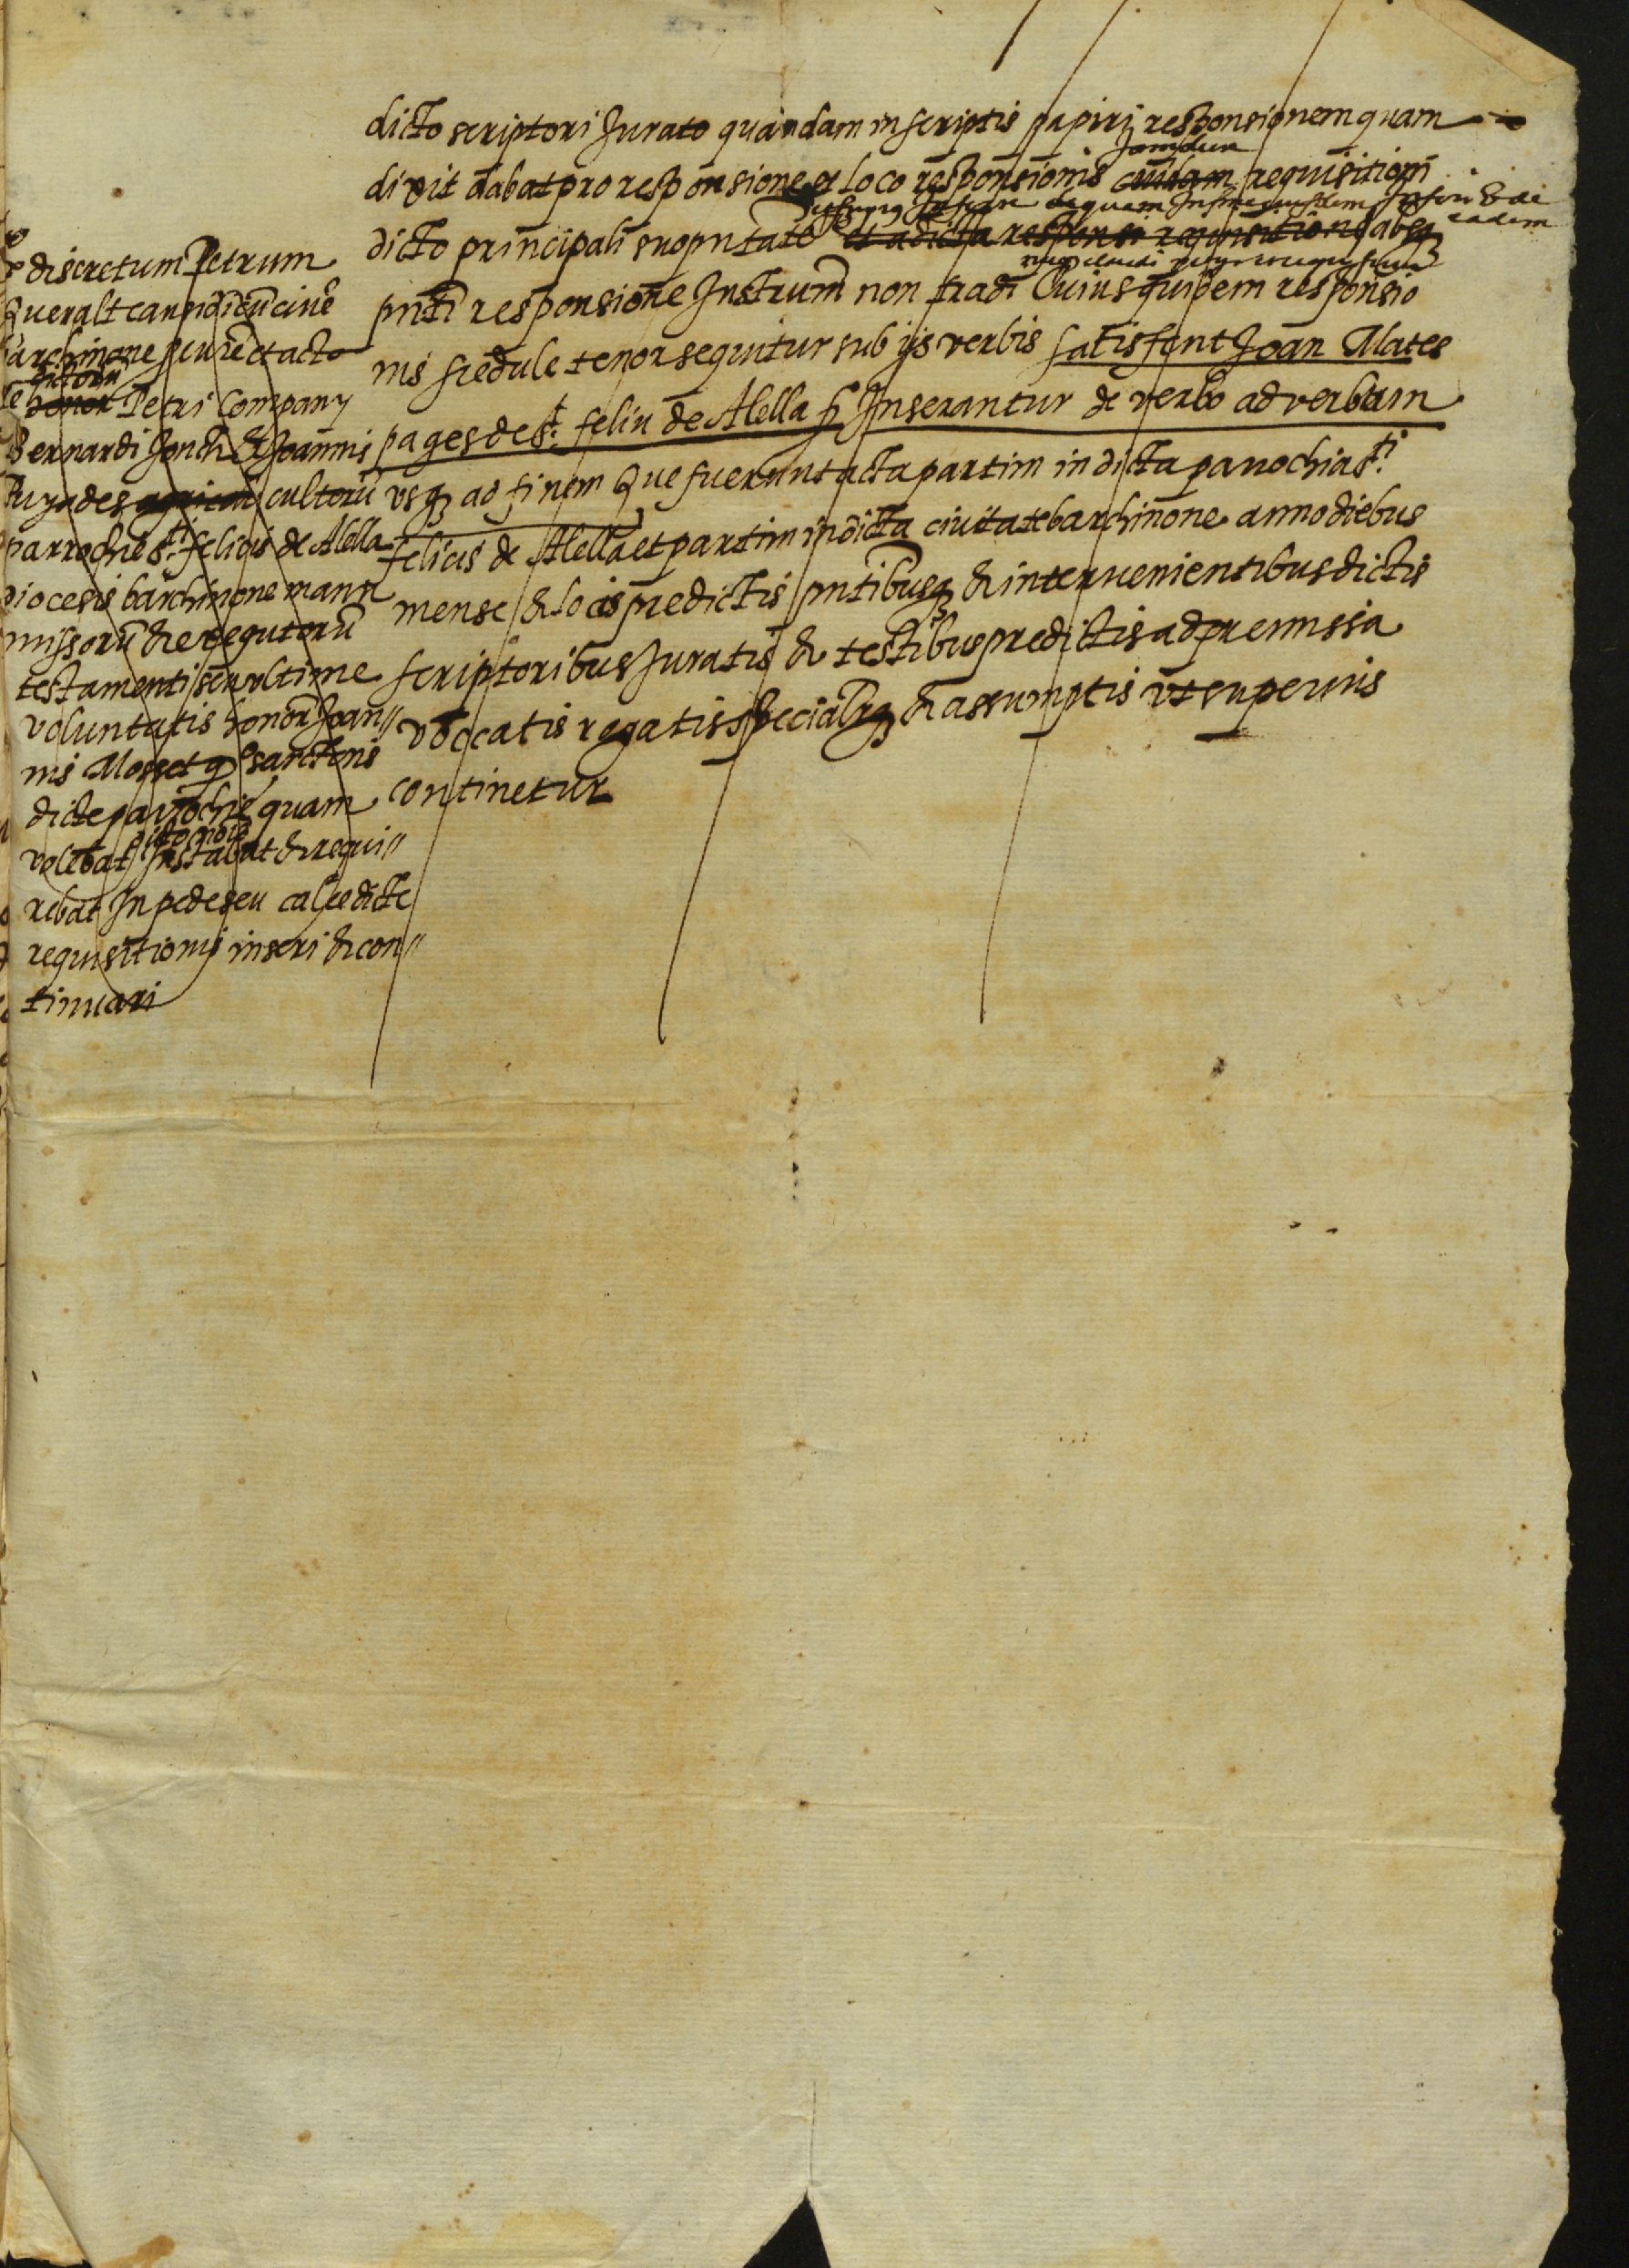 dicto scriptori Jurato quandam in scriptis papiri responsionem quam
jamdicte
dixit dabat pro responsione et loco responsionis cuidam requisitioni
inseri & de eadem
dicto principali suo pntate et a dicta responsi requisitione absq
pnti responsione Instrum non tradi Cuius quidem responsio
nis scedule tenor sequitur sub ijs verbis satisfent Joan Mates
pages de St. feliu de Alella Inserantur de verbo ad verbum
vsq ad finem Que fuerunt acta partim in dicta parrochia Sti.
felicis de Alella et partim in dicta ciuitate barchinone anno diebus
mense & locis predictis pntibusq & interuenientibus dictis
scriptoribus Juratis & testibus predictis ad premissa
vocatis rogatis specialrq & assumptis vt superius
continetur
discretum Petrum
Queralt causidicu ciue
barchinone procure et acto
dictoru
re honor Petri Company
Bernardi Jonch & Joannis
Puyades cultoru
parrochie Sti. felicis de Alella
diocesis barchinone manu
missoru & exequtoru
testamenti seu vltime
voluntatis honor Joan
nis Mosset q sartoris
dicte parrochie quam
dicto noie
volebat Instabat & requi
rebat In pede seu calce dicte
requisitionis inseri & con
tinuari